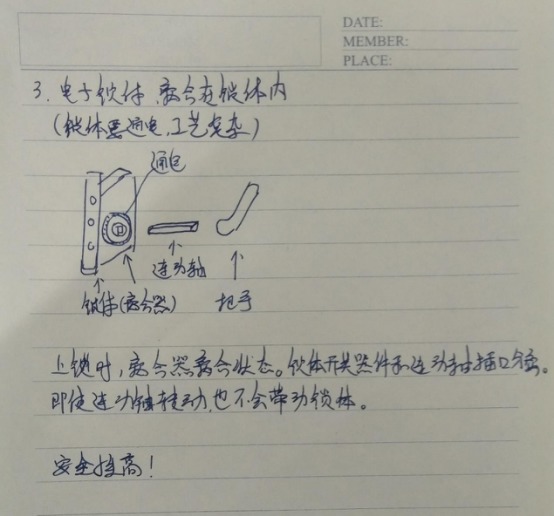 DATE:
MEMBER:
PLACE:
3. 电子锁体,离合在锁体内
(锁体要通电,工艺复杂)
通电
连动轴
锁体(离合器) 把手
上锁时,离合器离合状态。锁体开关器件和连动轴插口分离。
即使连动轴转动,也不会带动锁体。
安全提高!